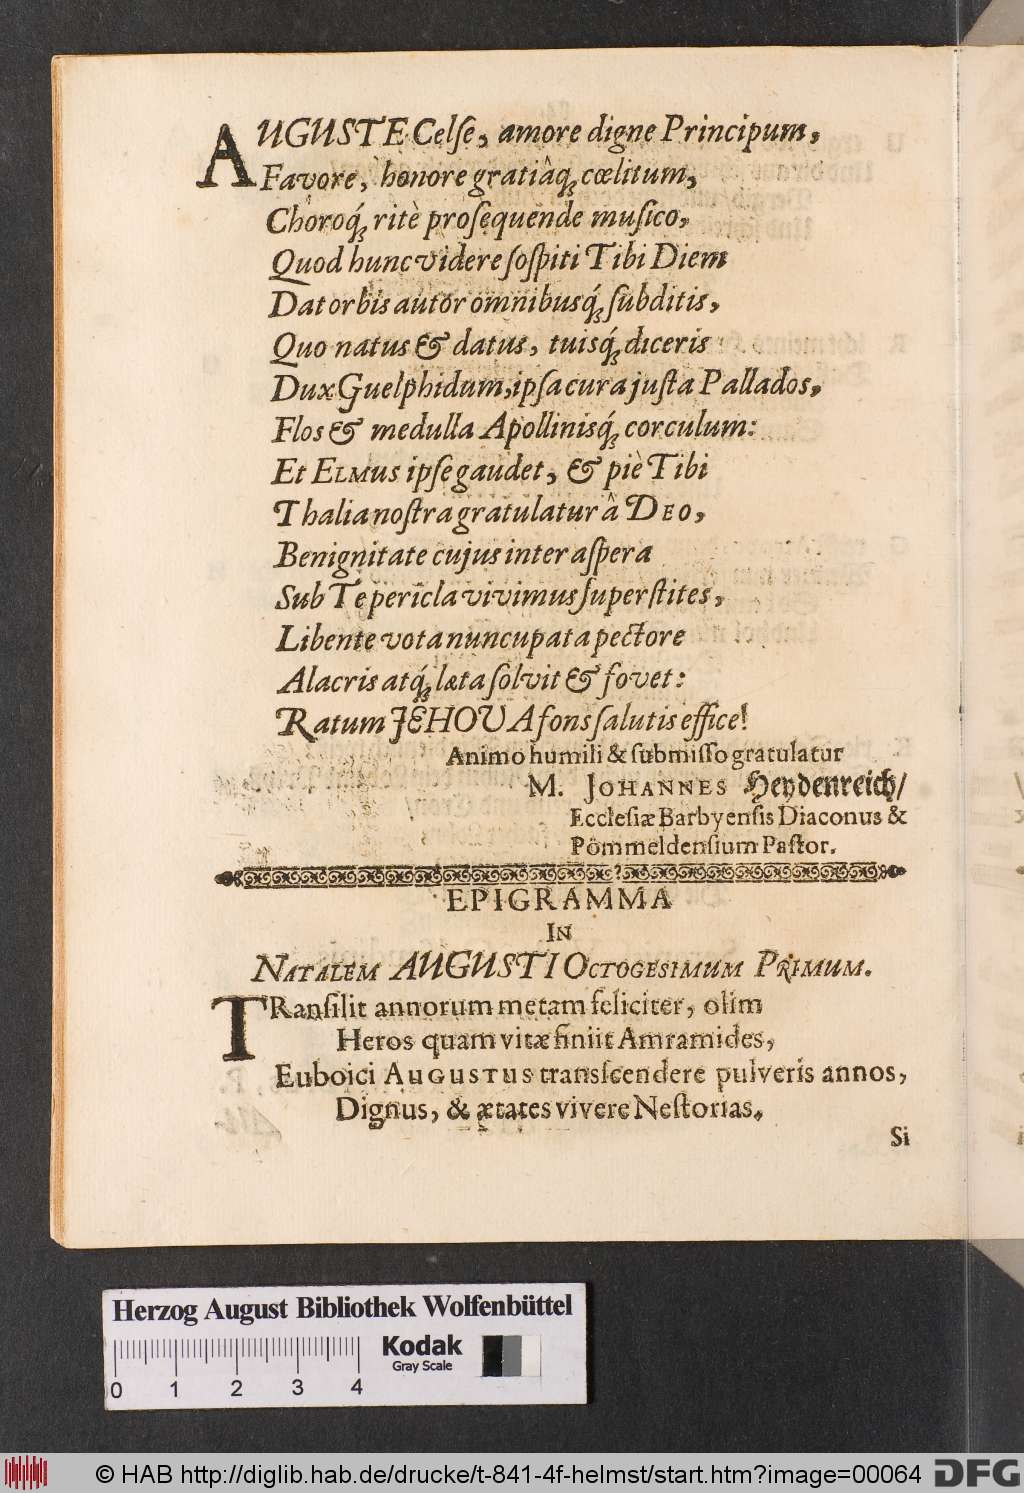 AUGUSTE Celſe, amore digne Principum,
Favore, honore gratiâq́ꝫ cœlitum,
Choroq́ꝫ ritè proſequende muſico,
Quod hunc videre ſoſpiti Tibi Diem
Dat orbis autor omnibusq́ꝫ ſubditis,
Quo natus & datus, tuisq́ꝫ diceris
Dux Guelphidum, ipſa cura juſta Pallados,
Flos & medulla Apollinisq́ꝫ corculum:
Et ELMUS ipſe gaudet, & piè Tibi
Thalia noſtra gratulatur â DEO,
Benignitate cujus inter aſpera
Sub Te pericla vivimus ſuperſtites,
Libente vota nuncupata pectore
Alacris atq́ꝫ læta ſolvit & fovet:
Ratum JEHOVA fons ſalutis effice!
Animo humili & ſubmiſſo gratulatur
M. JOHANNES Heydenreich/
Eccleſiæ Barbyenſis Diaconus &
Pömmeldenſium Paſtor.
EPIGRAMMA
IN
NATALEM AUGUSTI OCTOGESIMUM PRIMUM.
TRanſilit annorum metam feliciter, olim
Heros quam vitæ finiit Amramides,
Euboici AUGUSTUS transſcendere pulveris annos,
Dignus, & ætates vivere Neſtorias.
Si
Herzog August Bibliothek Wolfenbüttel
Kodak
Gray Scale
0 1 2 3 4
© HAB http://diglib.hab.de/drucke/t-841-4f-helmst/start.htm?image=00064
DFG